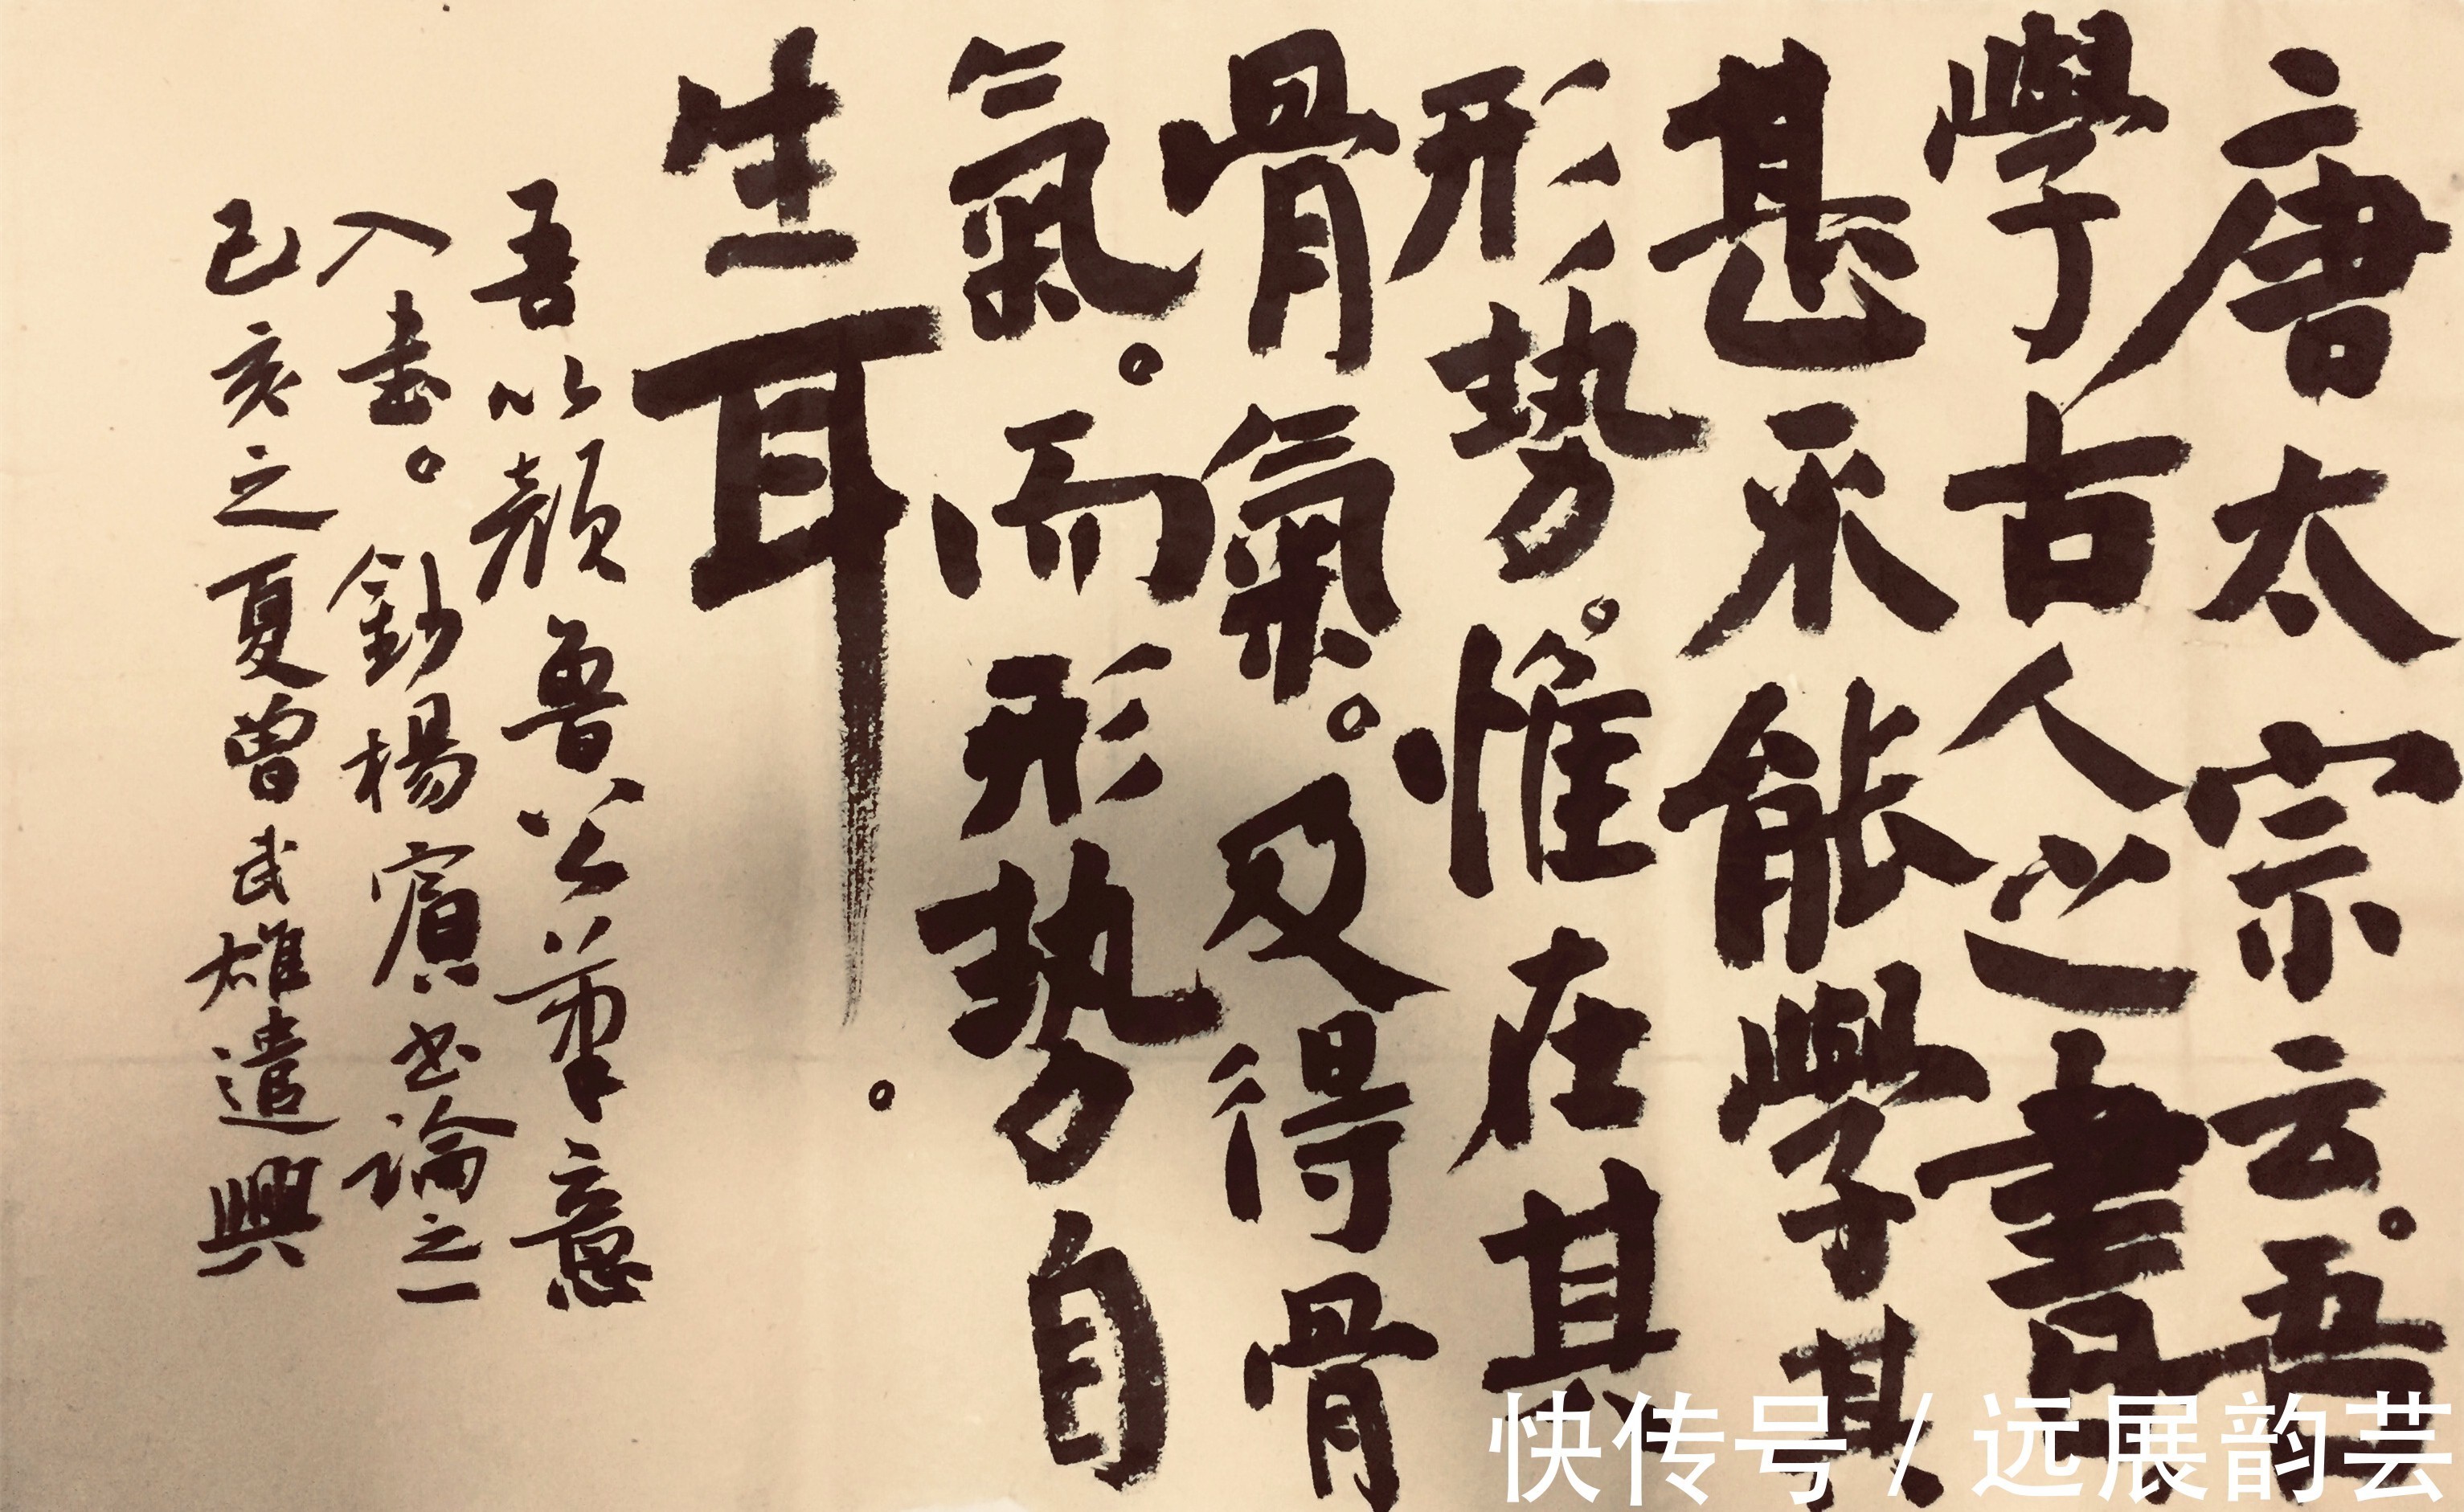 唐太宗云。吾
學古人之書
甚不能學其
形勢。惟在其
骨氣。及得骨
氣。而形勢自
生耳。
吾以顏魯公筆意
入書。鈔楊賓书論之一
己亥之夏曾武雄遣興
快传号/远展韵芸